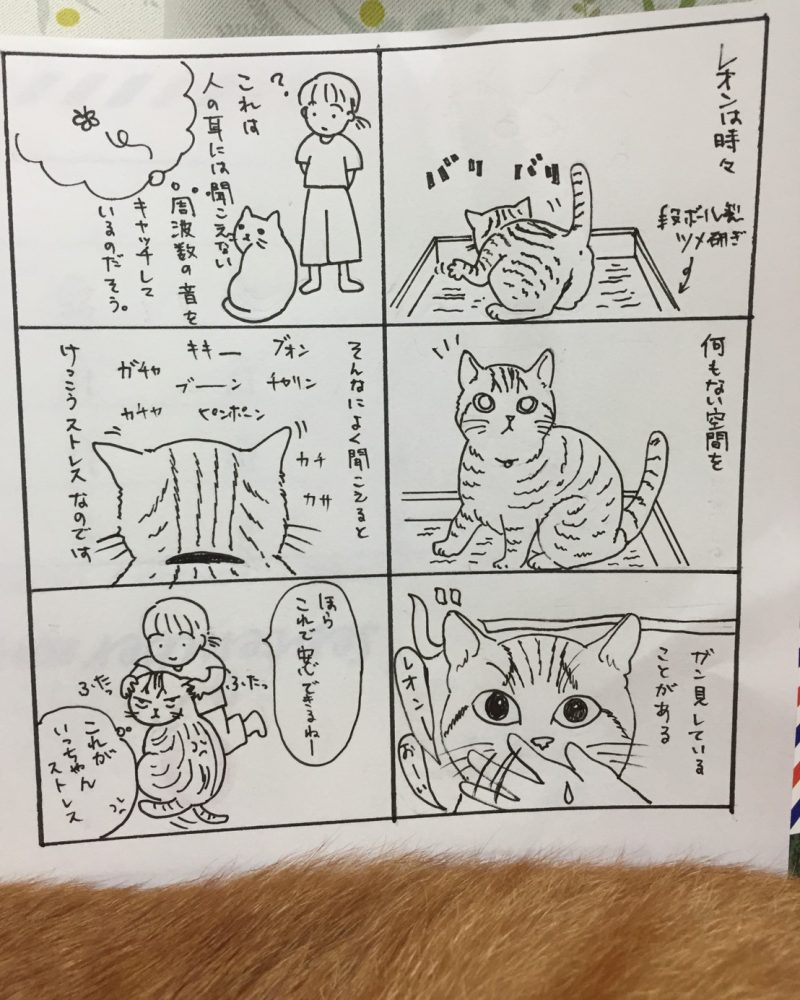 レオンは時々
バリ
バリ
段ボール製
ツメ研ぎ
何もない空間を
ガン見している
ことがある
レオンー
おーい
?
これは
人の耳には聞こえない
周波数の音を
キャッチして
いるのだそう。
そんなによく聞こえると
ブオン
キキー
ガチャ
チャリン
ブーーン
ピンポーン
ガチャ
カチ
カサ
けっこうストレスなのです
ほら
これで安心できるねー
ふたっ
ふたっ
これが
いっちゃん
ストレス